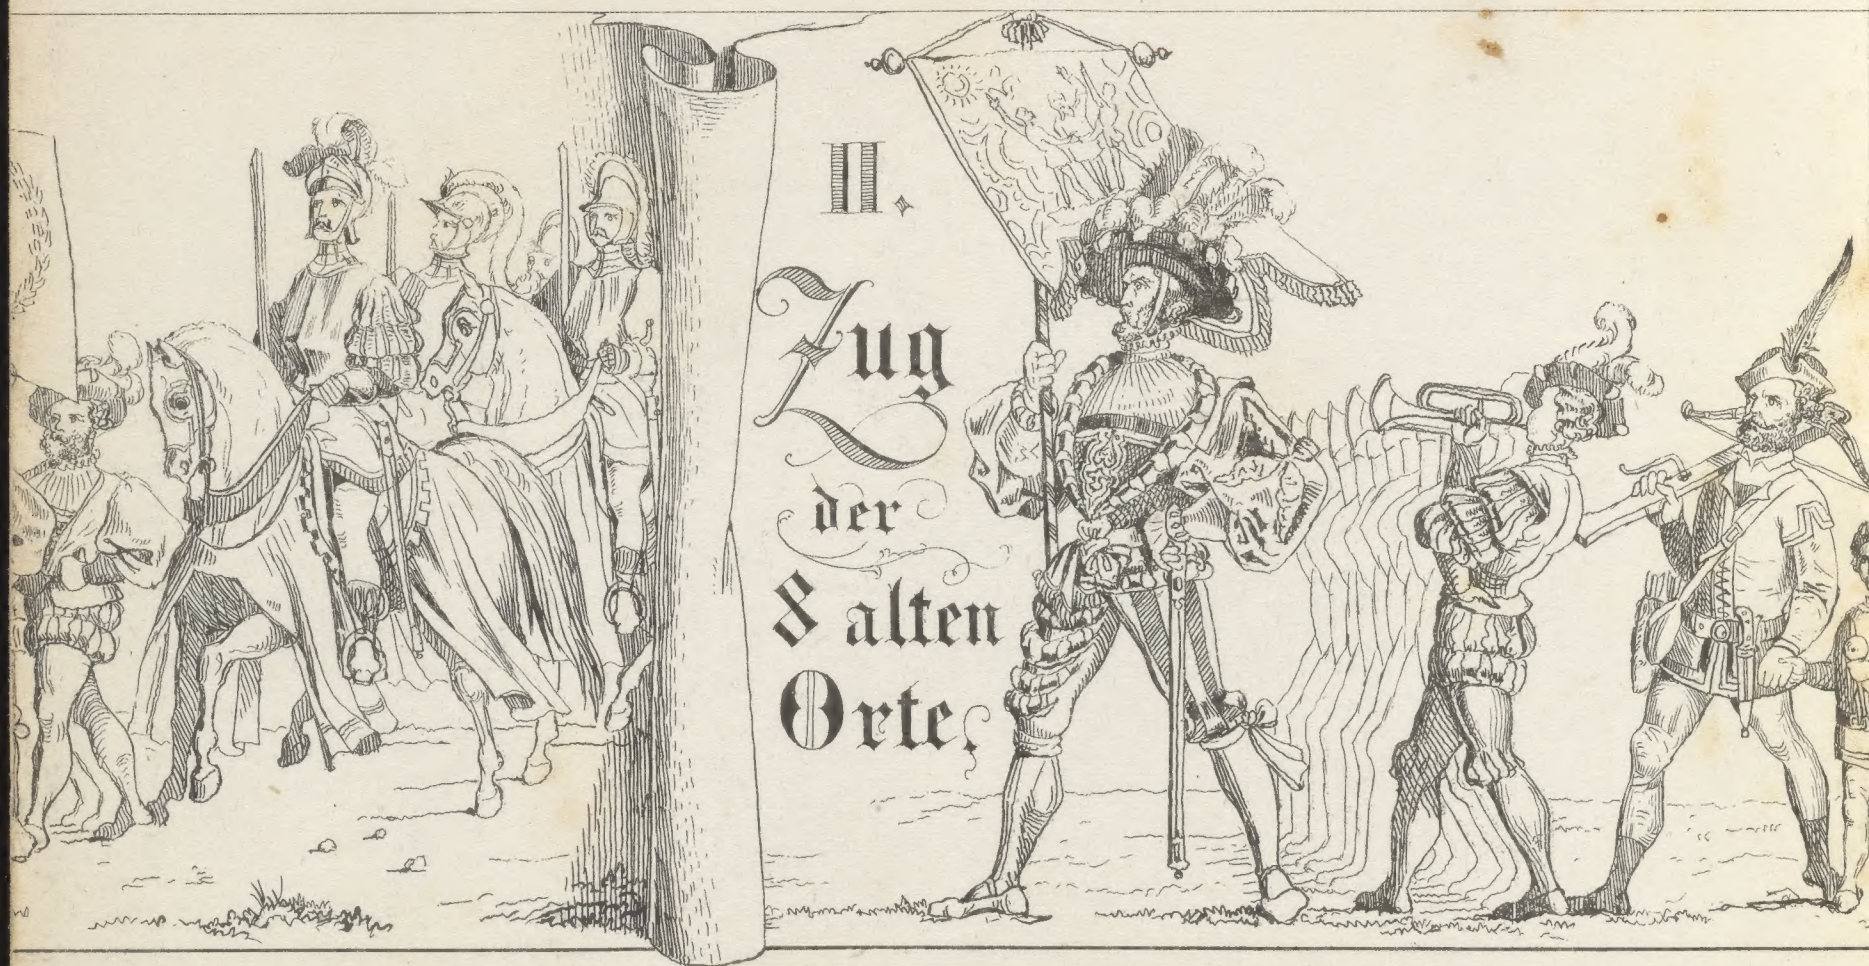 II.
Zug
der
8 alten
Orte.